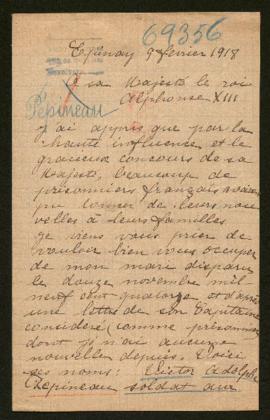 69356
Epernay 9 février 1918
A sa Majesté le roi
Alphonse XIII
Pépineau
J'ai appris que par la
haute influence et le
gracieux concours de sa
Majesté, beaucoup de
prisonniers français
pu donner de leurs nou
velles à leurs familles
je viens vous prier de
vouloir bien vous occuper
de mon mari disparu
le douze novembre mil
neuf cent quatorze et d'après
une lettre de son Capitaine
considéré comme prisonnier
dont je n'ai aucune
nouvelle depuis. Voici
ses noms: Victor Adolphe
Pépineau soldat au